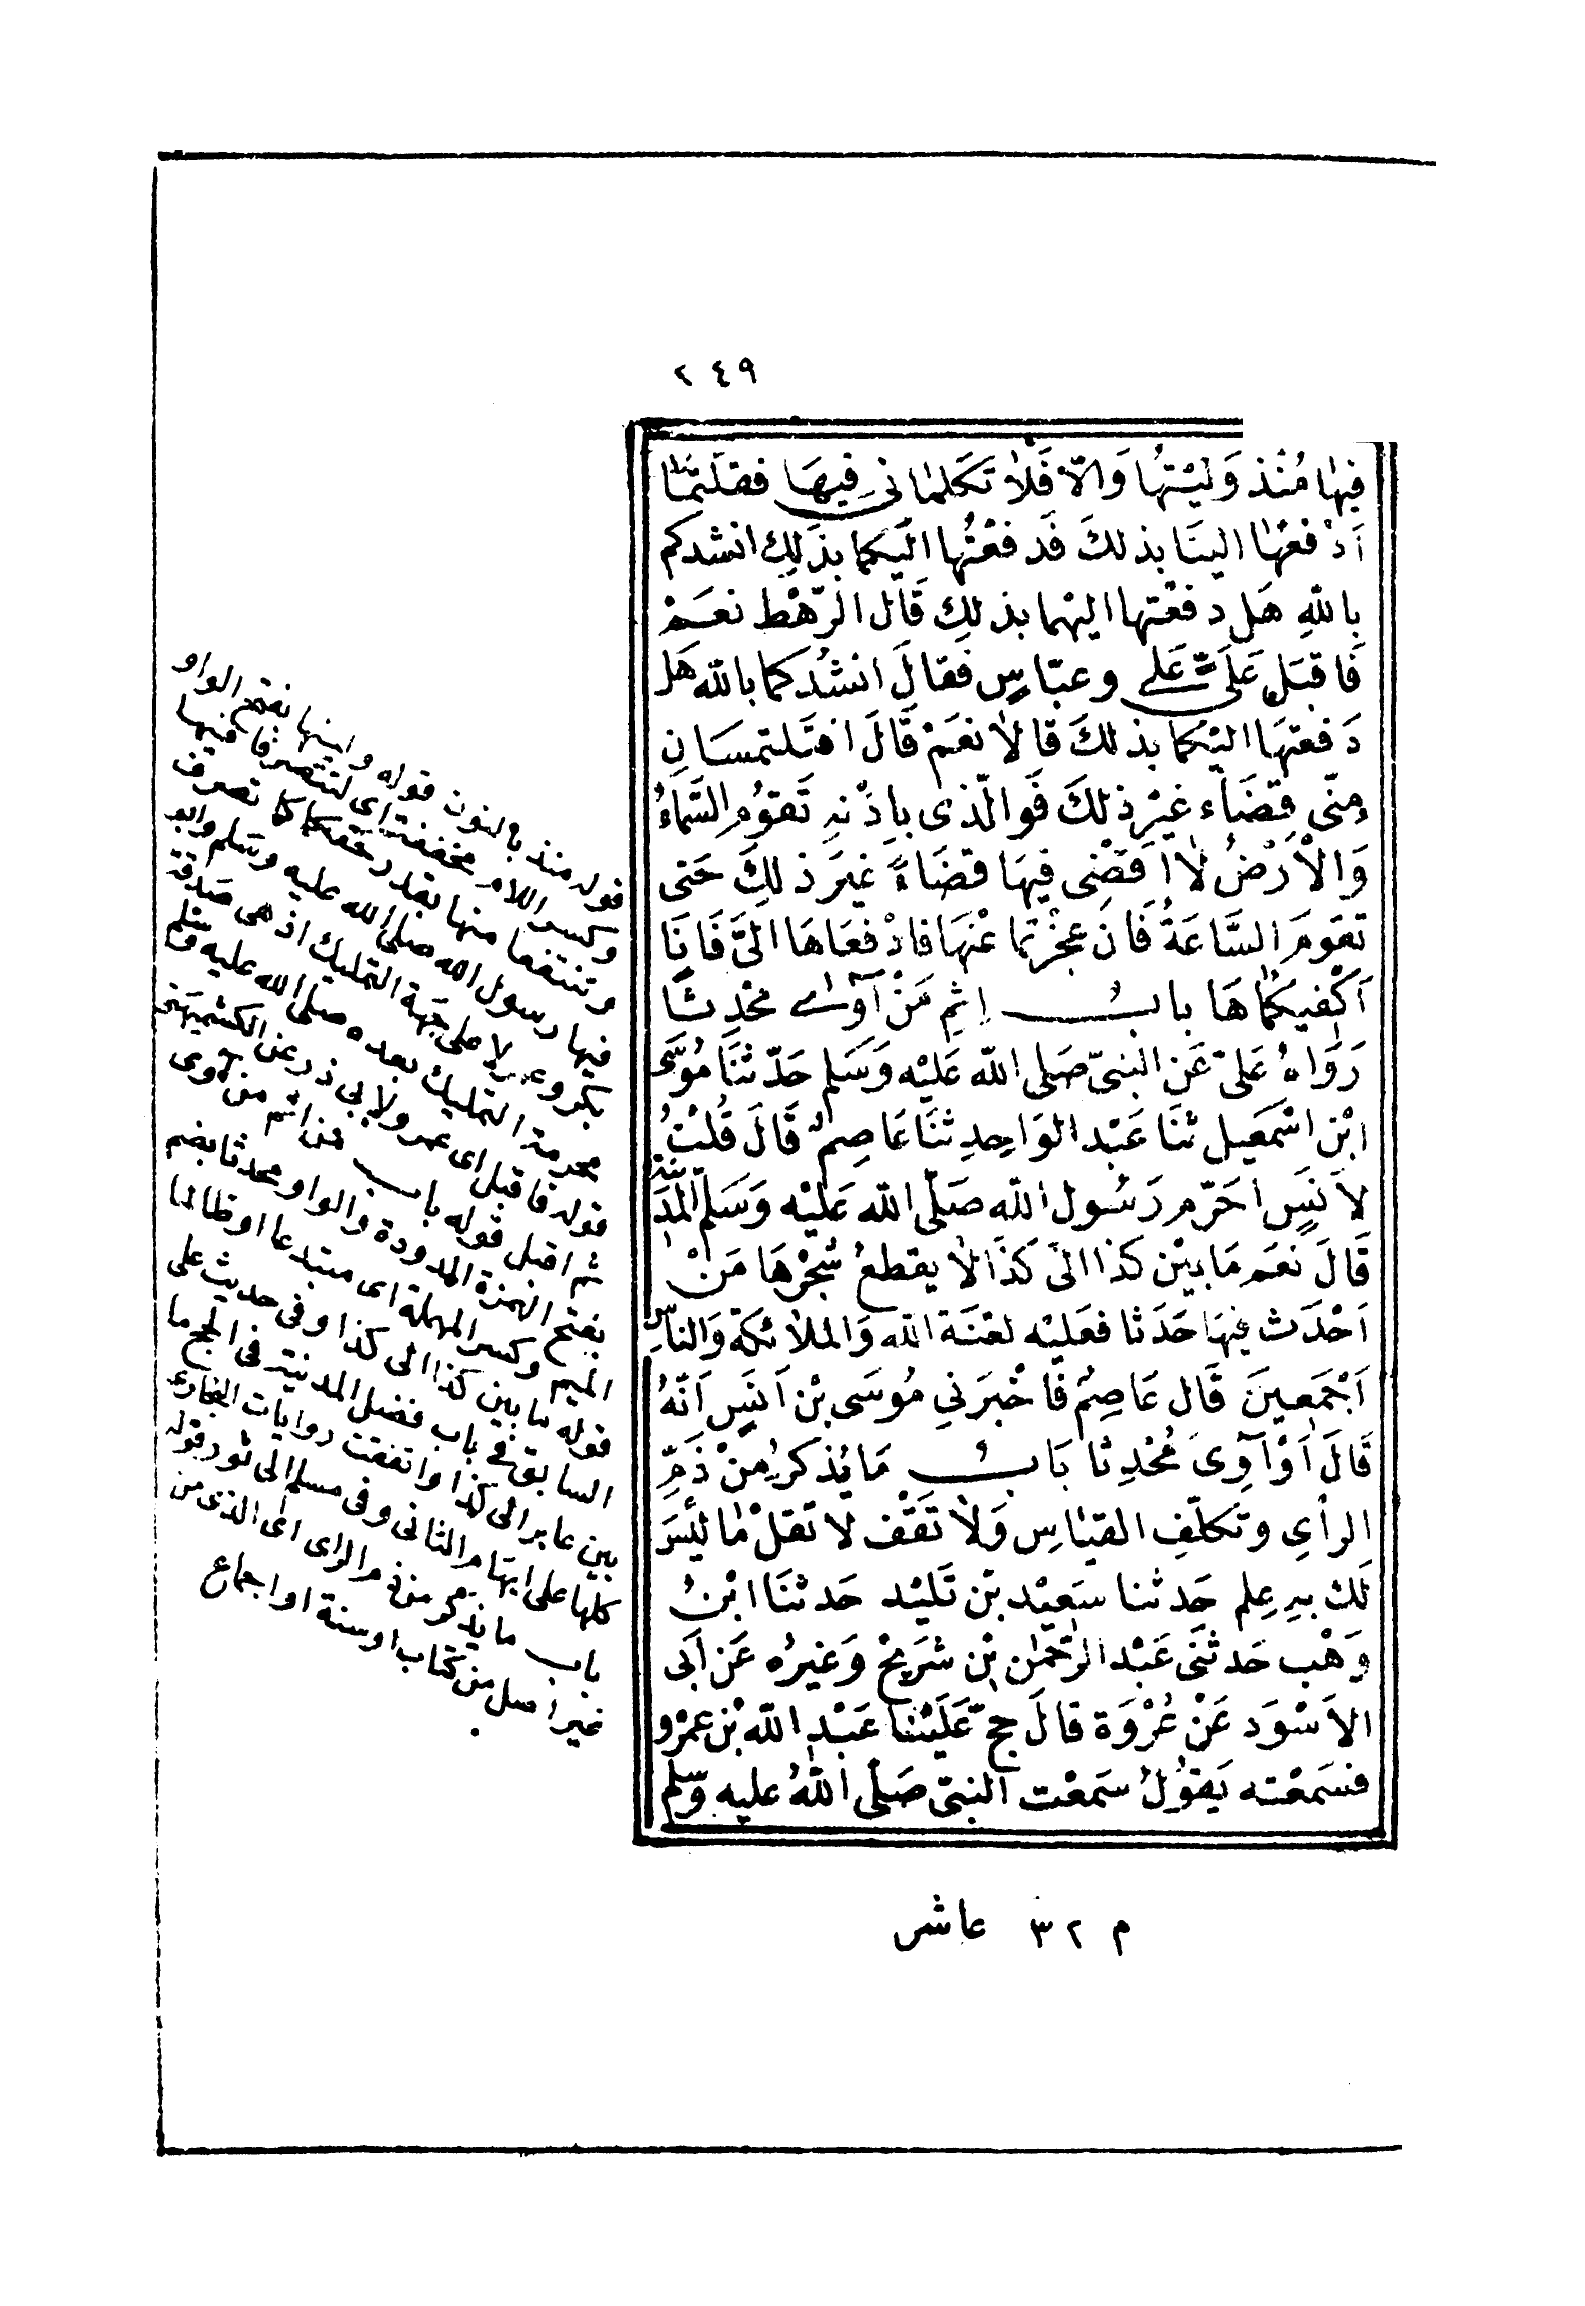 ٢٤٩
فِيهَا مُنْذ وَلِيْتُهَا وَالّا فَلَا تَكَلمَانى فِيهَا فقلتما
اَدْفعْهَا الينَا بذلكَ فَدفعْتُها الَيكما بذلِكَ انشدكم
بِاللّهِ هَل دفعْتها اليْهما بذلِكَ قَال الرّهْط نعَمْ
فَاقبَل عَلَى عَلى وعبّاسٍ فقالَ انشُدكما باللّه هَل
دَفعتهَا اليْكما بذلكَ قالَا نعَمْ قَالَ افتَلتمسَانِ
مِنّى قضَاء غيْر ذلكَ فَوالّذى باِذْنهِ تَقوُم السَّمَاءُ
وَالْاَرْضُ لَا اَقضْى فِيهَا قضَاءً غيرَ ذلكَ حَتى
تقومَ السَّاعَةُ فَان عجزْتما عنْهَا فادْفعَاهَا الىَّ فَانَا
اَكْفيكمَاهَا بابُ اِثمِ مَنْ آوَى محْدِثًا
رَوَاهُ عَلىّ عَن النبىّ صَلى اللّه عَليْه وَسَلم حَدّثنَا مُوسَى
ابْن اسْمٰعيل ثنَا عَبْد الوَاحِدِ ثنَا عَاصِمٌ قَالَ قُلْتُ
لاَنسٍ احَرّم رَسُول اللّه صَلّى اللّه عَليْه وَسَلم المدَينة
قَالَ نعَم مَا بيْن كذا الىَ كَذَا لَا يقطعُ شجرْهَا مَنْ
اَحْدَث فيهَا حَدَثا فعَليْه لعْنَة اللّه وَالملَائكة وَالناسِ
اَجْمَعينَ قَال عَاصِمٌ فَاخْبرَنى مُوسَى بْن اَنسٍ اَنّهُ
قَالَ اَوْ آوَى مُحْدِثا بَابُ مَا يُذكرُ مِنْ ذَمِّ
الرأىِ وتكلّفِ القيَاسِ وَلَا تَقْف لَا تَقلْ مَا ليْسَ
لَكَ بهِ عِلم حَدثنا سَعيْد بْن تَليْد حَدثنَا ابْنُ
وَهْب حَدثَنى عَبْد الرّحمٰن بْن شرَيحْ وَغيرُه عَن اَبى
الاَسْوَد عَنْ عُرْوَة قالَ حجّ عَلَيْنا عَبْد اللّه بْن عمْرو
فسَمعْته يَقوُلُ سَمعْت النبىّ صَلّى اللّهُ عليه وسَلم
قوله منذ بالنون قوله وليتها بفتح الواو
وكسر اللام مخففة اى لتتصرفا فيها
وتنتفعا منها بقدر حقكما كما تصرف
فيها رسول الله صلى الله عليه وسلم وابو
بكر وعمر لا على جهة التمليك اذ هى صدقة
محرمة التمليك بعده صلى الله عليه وسلم
قوله فاقبل اى عمر ولابى ذر عن الكشميهنى
ثم اقبل قوله باب اثم من آوى
بفتح الهمزة الممدودة والواو ومحدثا بضم
الميم وكسر المهملة اى مبتدعا او ظالما
قوله ما بين كذا الى كذا وفى حديث على
السابق فى باب فضل المدينة فى الحج ما
بين عاير الى كذا واتفقت روايات البخارى
كلها على ابهام الثانى وفى مسلم الى ثور قوله
باب ما يذكر من ذم الراى اى الذى من
غير اصل من كتاب او سنة او اجماع
م ٣٢ عاشر